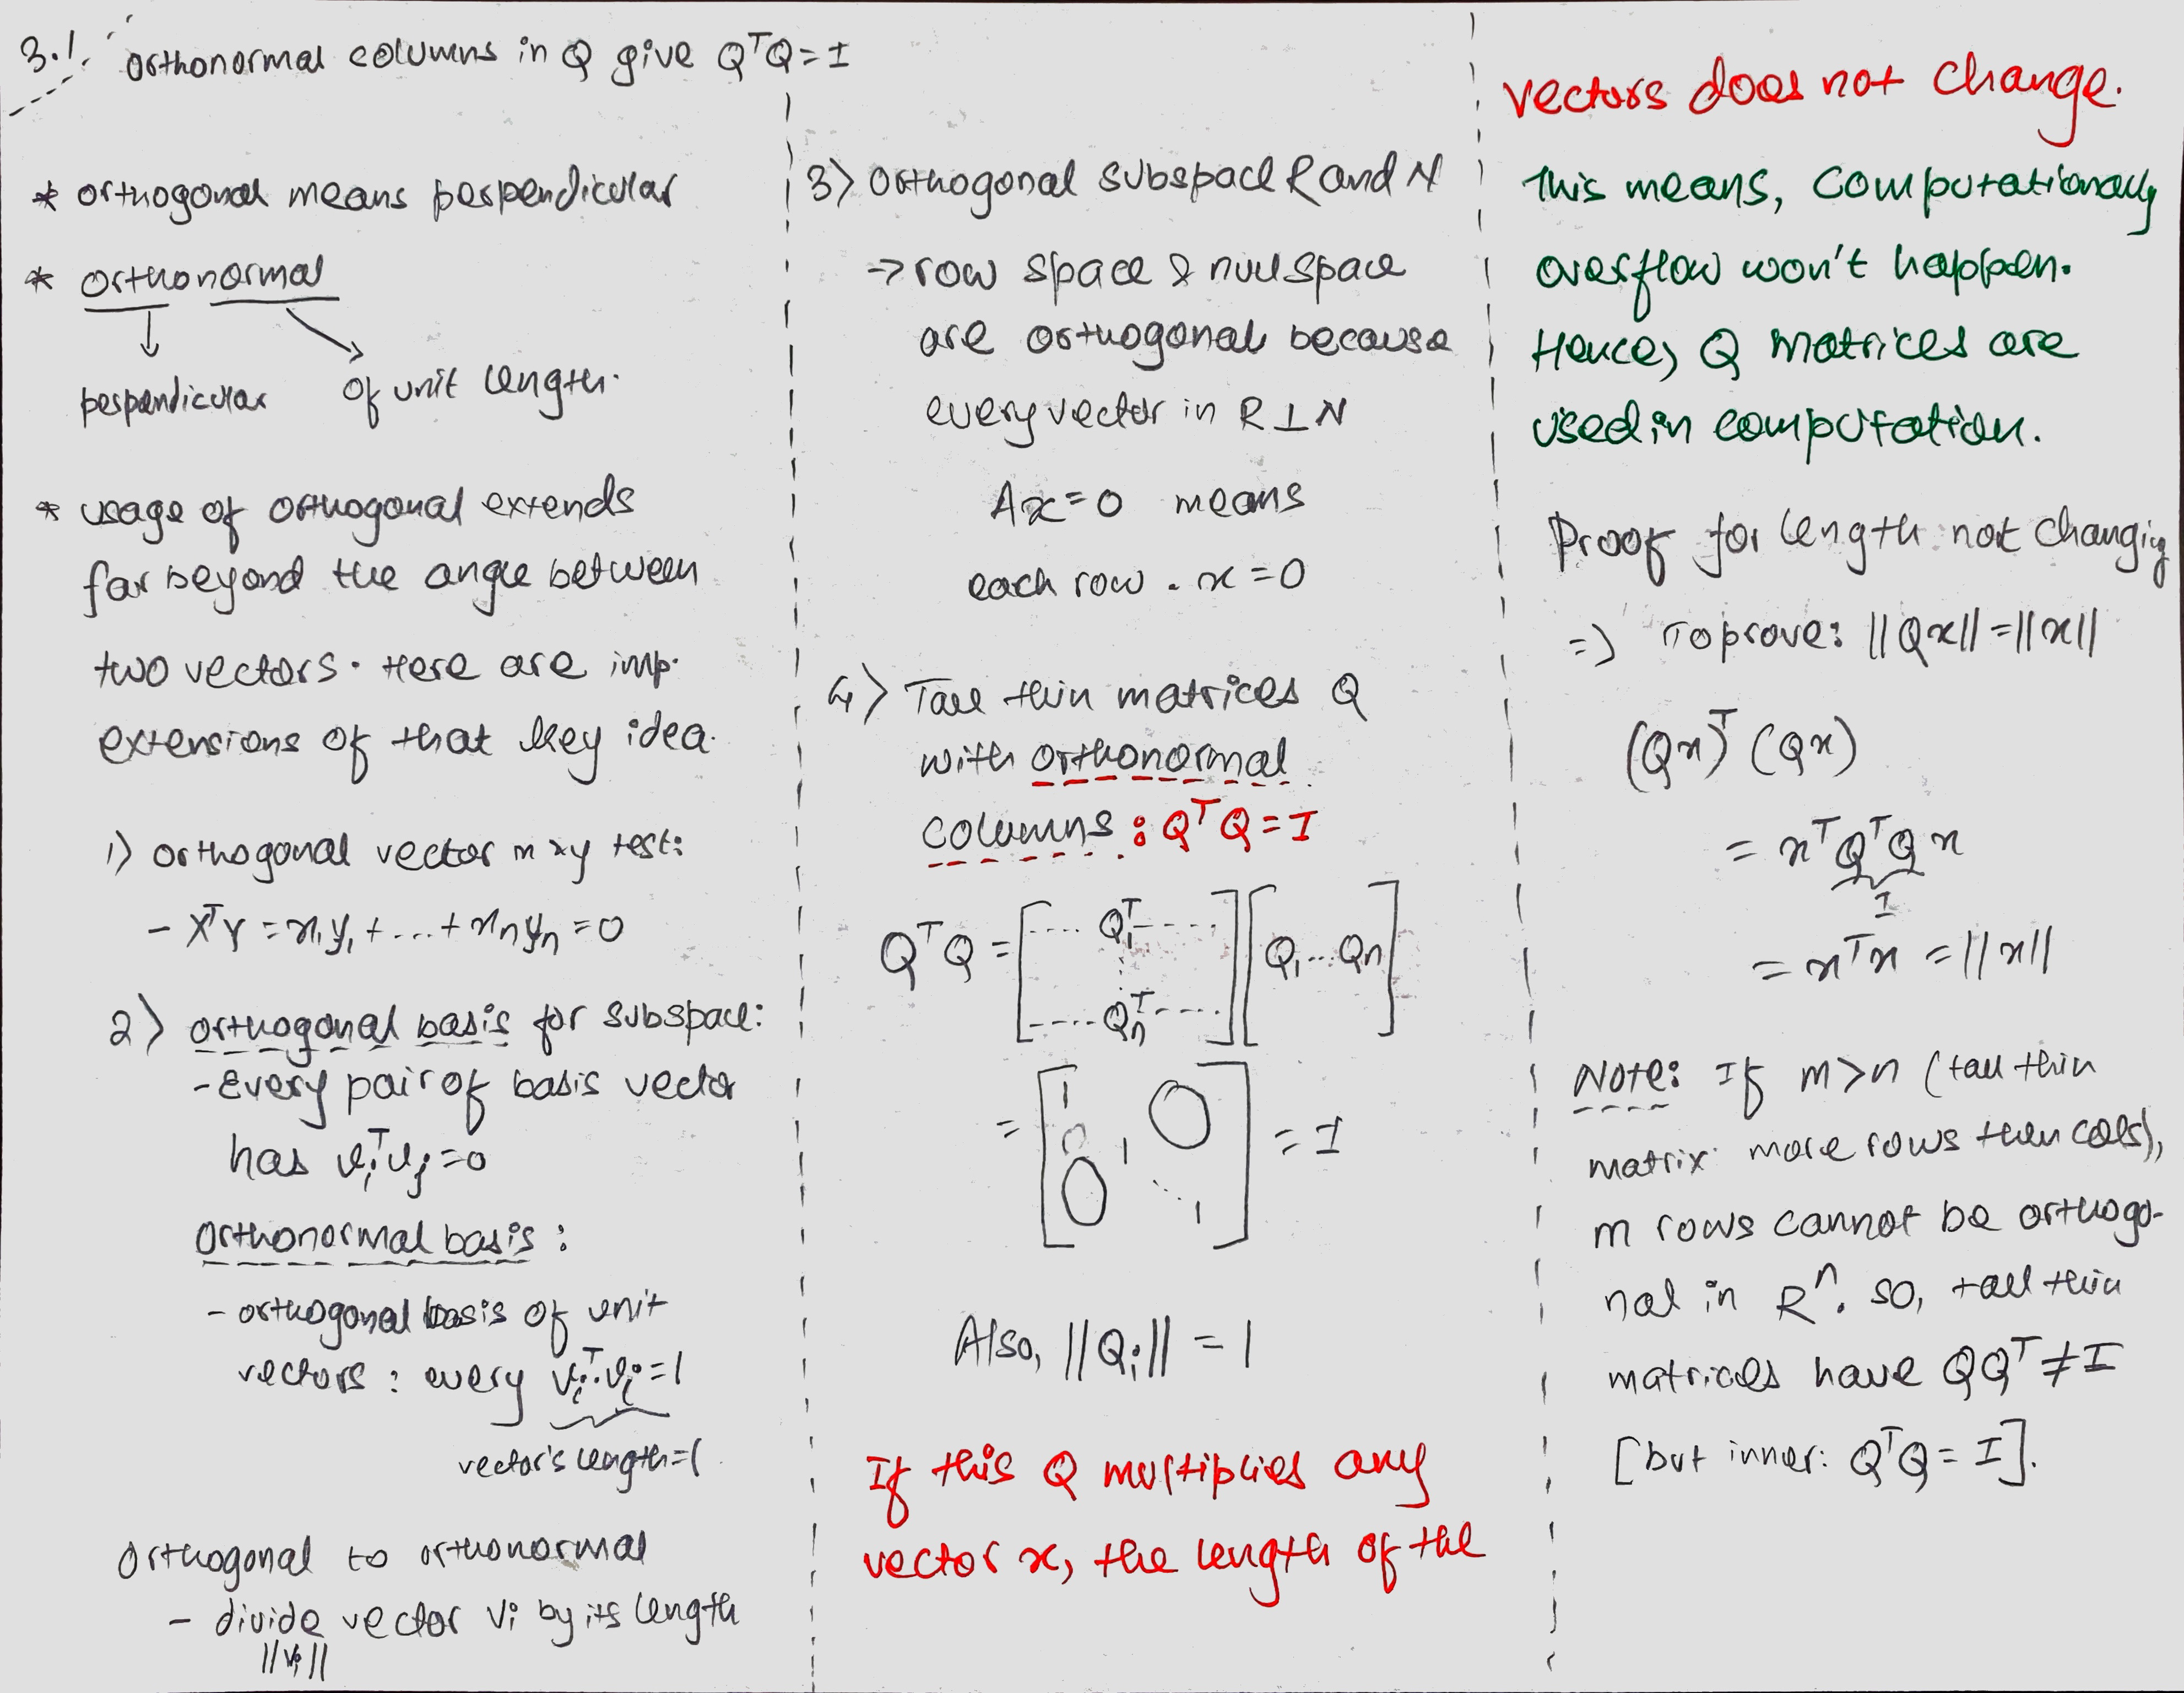 3.1. Orthonormal columns in Q give QᵀQ=I
* Orthogonal means perpendicular
* Orthonormal
perpendicular of unit length.
* usage of orthogonal extends
far beyond the angle between
two vectors. Here are imp.
extensions of that key idea.
1) Orthogonal vector x y test:
- XᵀY = x₁y₁ + ... + xₙyₙ = 0
2) Orthogonal basis for subspace:
- Every pair of basis vector
has vᵢᵀvⱼ=0
Orthonormal basis:
- orthogonal basis of unit
vectors: every vᵢᵀ.vᵢ=1
vector's length=1
Orthogonal to orthonormal
- divide vector vᵢ by its length
||vᵢ||
3) Orthogonal subspace R and N
-> row space & nullspace
are orthogonal because
every vector in R⊥N
Ax=0 means
each row . x = 0
4) Tall thin matrices Q
with orthonormal
columns: QᵀQ=I
QᵀQ = [.... Q₁ᵀ ---- ... ---- Qₙᵀ ----] [Q₁...Qₙ]
= [1 0 0 1 ... 0 1] = I
Also, ||Qᵢ|| = 1
If this Q multiplies any
vector x, the length of the
vectors does not change.
This means, computationally
overflow won't happen.
Hence, Q matrices are
used in computation.
Proof for length not changing
=> To prove: ||Qx|| = ||x||
(Qx)ᵀ(Qx)
= xᵀQᵀQx
I
= xᵀx = ||x||
Note: If m>n (tall thin
matrix more rows than cols),
m rows cannot be orthogo-
nal in Rⁿ. so, tall thin
matrices have QQᵀ≠I
[but inner: QᵀQ = I].